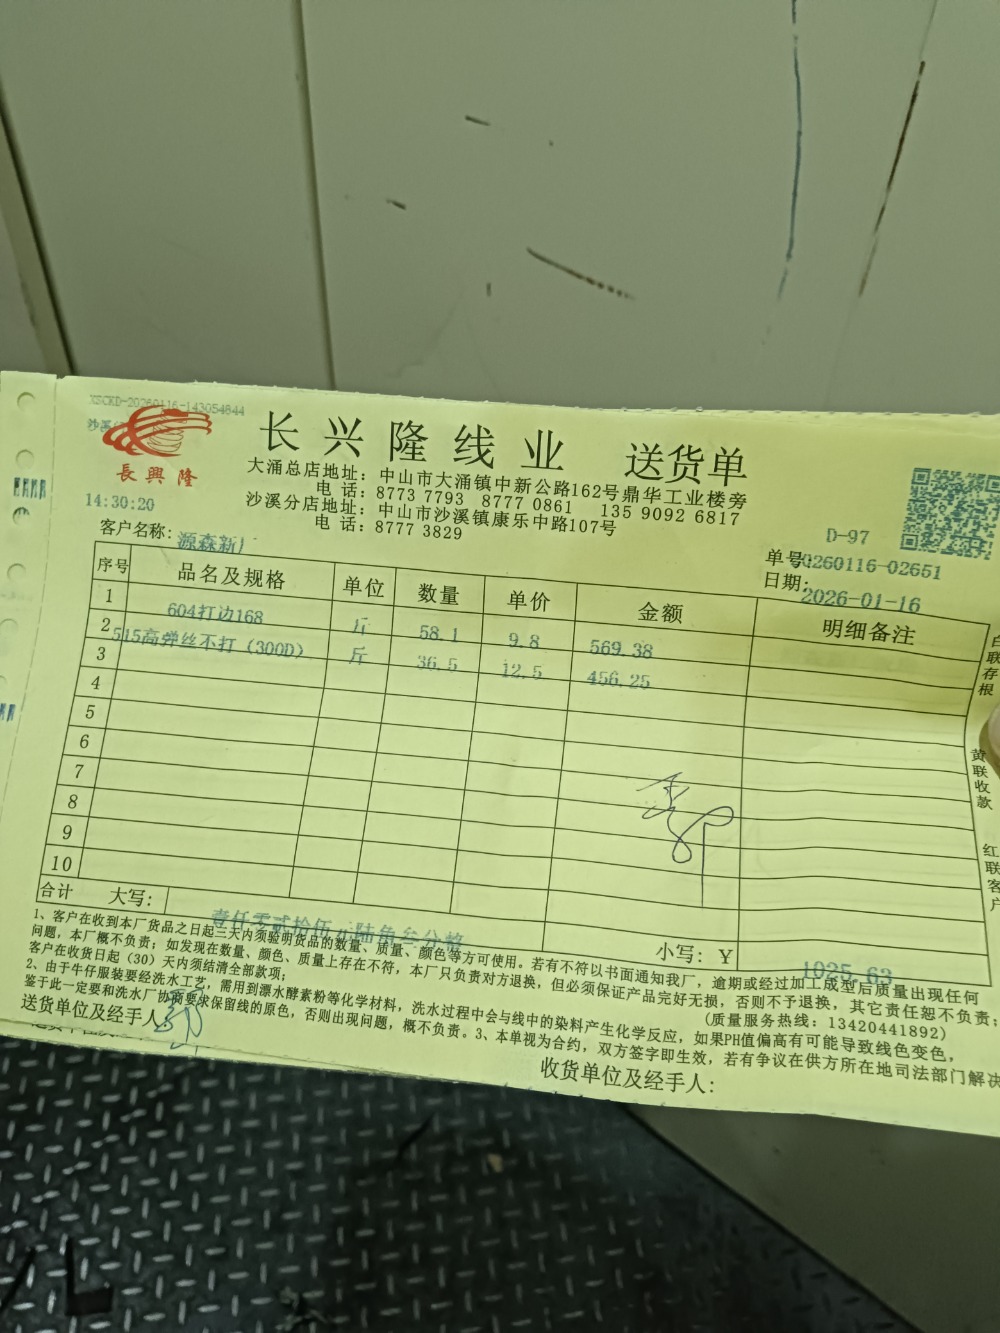 XSCKD-20260116-143054844
沙溪
長興隆
长兴隆线业 送货单
大涌总店地址：中山市大涌镇中新公路162号鼎华工业楼旁
电话：8773 7793 8777 0861 135 9092 6817
沙溪分店地址：中山市沙溪镇康乐中路107号
电话：8777 3829
14:30:20
D-97
客户名称：源森新
单号：0260116-02651
日期：2026-01-16
序号 品名及规格 单位 数量 单价 金额 明细备注
1 604打边168 斤 58.1 9.8 569.38
2 515高弹丝不打（300D） 斤 36.5 12.5 456.25
3
4
5
6
7
8
9
10
合计 大写：壹仟零贰拾伍元陆角叁分整 小写：Y 1025.63
1、客户在收到本厂货品之日起三天内须验明货品的数量、质量、颜色等方可使用。若有不符以书面通知我厂，逾期或经过加工成型后质量出现任何
问题，本厂概不负责；如发现在数量、颜色、质量上存在不符，本厂只负责对方退换，但必须保证产品完好无损，否则不予退换，其它责任恕不负责；
客户在收货日起（30）天内须结清全部款项； （质量服务热线：13420441892）
2、由于牛仔服装要经洗水工艺，需用到漂水酵素粉等化学材料，洗水过程中会与线中的染料产生化学反应，如果PH值偏高有可能导致线色变色，
鉴于此一定要和洗水厂协商要求保留线的原色，否则出现问题，概不负责。3、本单视为合约，双方签字即生效，若有争议在供方所在地司法部门解决
送货单位及经手人： 收货单位及经手人：
白联存根
黄联收款
红联客户